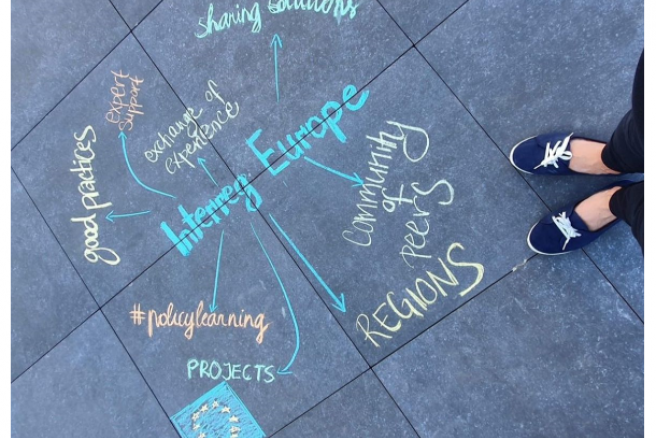 sharing solutions
expert
support
exchange of
experience
good practices
Interreg Europe
Community
of
peers
REGIONS
#policylearning
PROJECTS